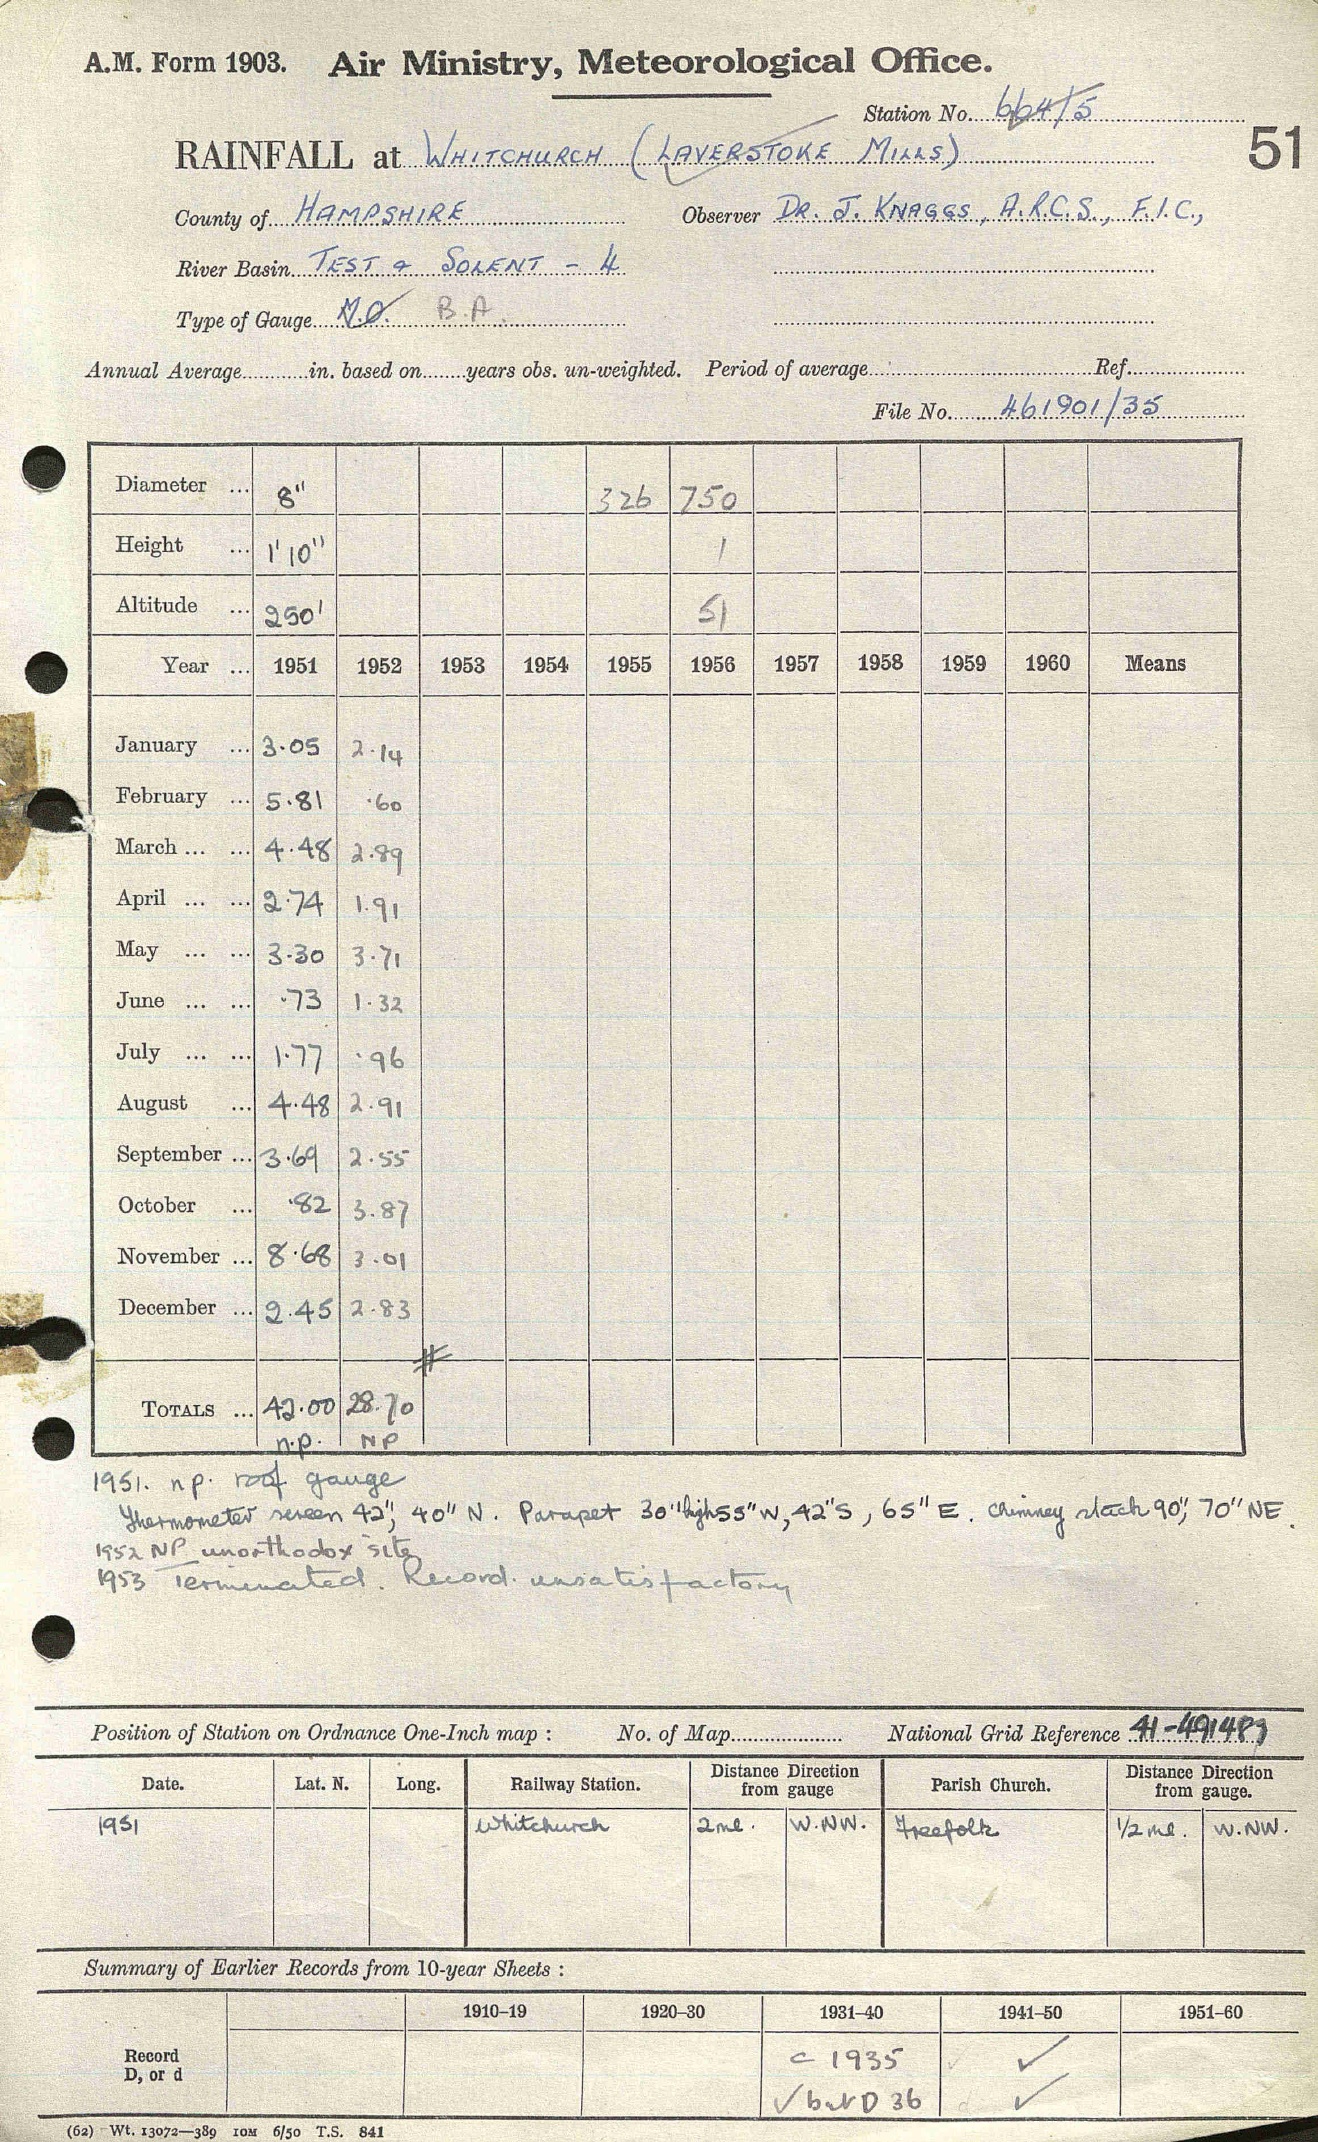 A.M. Form 1903. Air Ministry, Meteorological Office.
Station No. 664/5
51
RAINFALL at WHITCHURCH (LAVERSTOKE MILLS)
County of HAMPSHIRE Observer DR. J. KNAGGS, A.R.C.S., F.I.C.,
River Basin TEST & SOLENT - 4
Type of Gauge M.O. B.A.
Annual Average..........in. based on.......years obs. un-weighted. Period of average.......... Ref..........
File No. 461901/35
Diameter ... 8" 326 750
Height ... 1'10" 1
Altitude ... 250' 51
Year ... 1951 1952 1953 1954 1955 1956 1957 1958 1959 1960 Means
January ... 3.05 2.14
February ... 5.81 .60
March ... ... 4.48 2.89
April ... ... 2.74 1.91
May ... ... 3.30 3.71
June ... ... .73 1.32
July ... ... 1.77 .96
August ... 4.48 2.91
September ... 3.69 2.55
October ... .82 3.87
November ... 8.68 3.01
December ... 2.45 2.83
TOTALS ... 42.00 28.70
n.p. NP
1951. n.p. roof gauge
Thermometer screen 42", 40" N. Parapet 30" high 55" W, 42" S, 65" E. Chimney stack 90", 70" NE.
1952 NP unorthodox site
1953 Terminated. Record unsatisfactory
Position of Station on Ordnance One-Inch map : No. of Map.......... National Grid Reference 41-491489
Date. Lat. N. Long. Railway Station. Distance Direction from gauge Parish Church. Distance Direction from gauge.
1951 Whitchurch 2 ml. W.NW. Freefolk 1/2 ml. W.NW.
Summary of Earlier Records from 10-year Sheets :
1910–19 1920–30 1931–40 1941–50 1951–60
Record D, or d
c 1935 ✓
✓ but D 36 ✓
(62) Wt. 13072—389 10M 6/50 T.S. 841